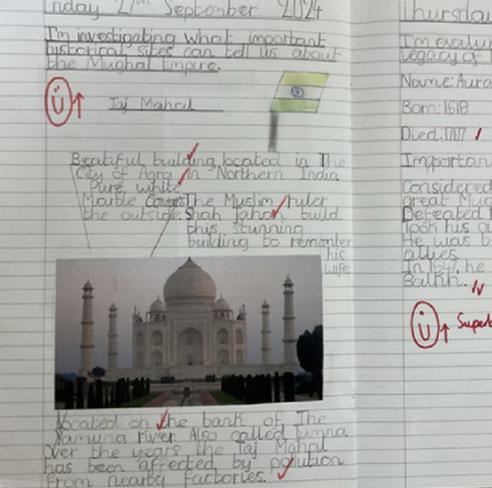 Friday 27th September 2024
I'm investigating what important
historical sites can tell us about
the Mughal Empire.
Taj Mahal
Beautiful building located in The
City of Agra in Northern India
Pure white
Marble
the outside
The Muslim ruler
Shah Jahan build
this stunning
building to remember
his
wife
located on the bank of The
Yamuna river. Also called Jumna
over the years the Taj Mahal
has been affected by pollution
from nearby factories.
Thursda
I'm evalu
legacy of
Name: Aura
Born: 1618
Died: 1707
Importan
Considered
great Mu
Defeated
Took his
He was b
allies.
In 1647 he
Balkh.
Super